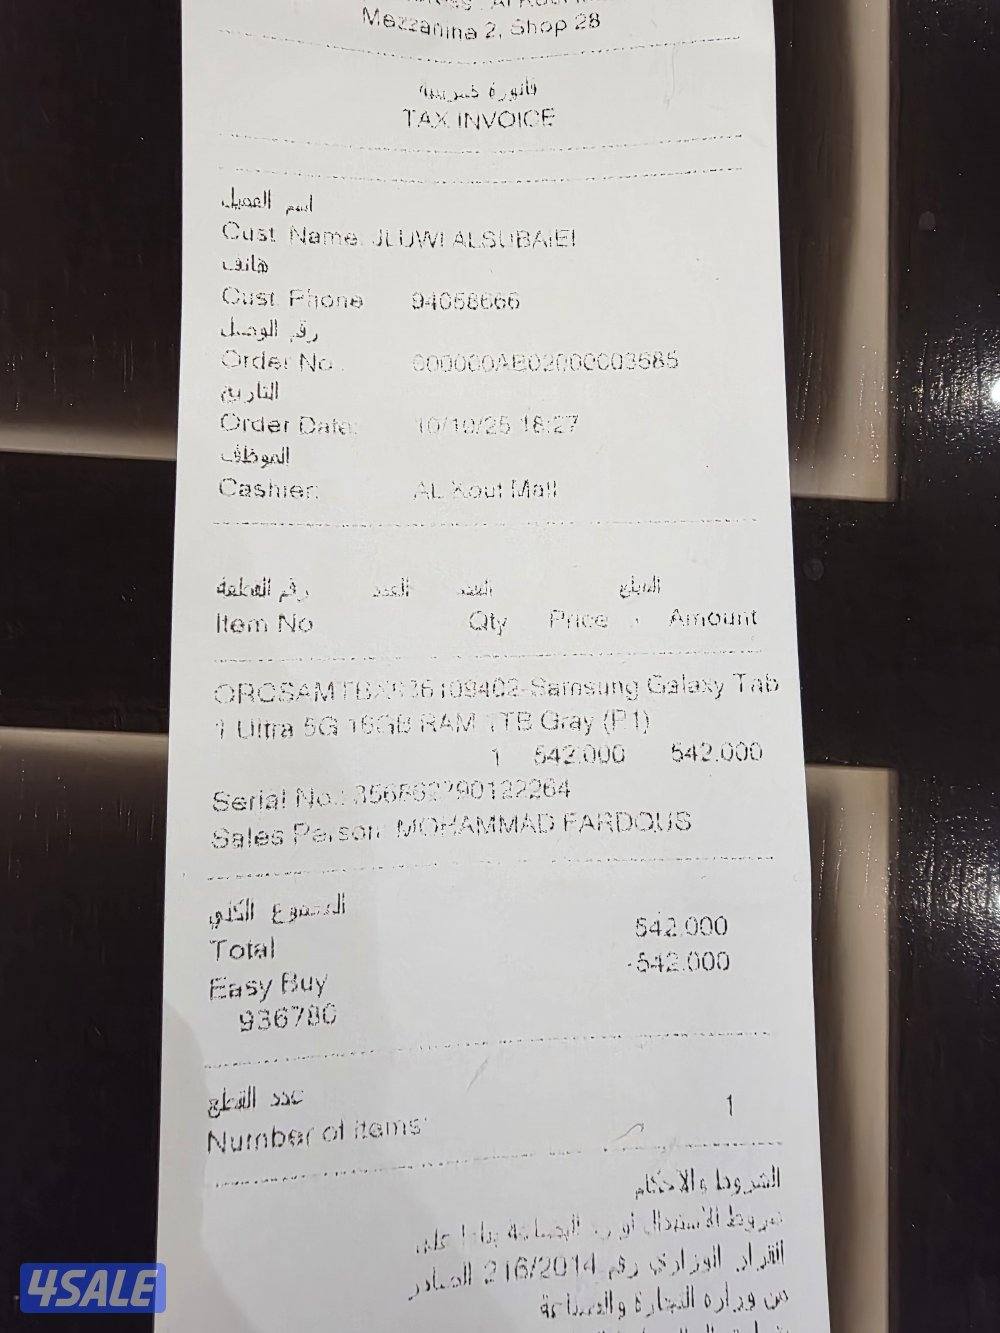 Mezzanine 2, Shop 28
فاتورة ضريبية
TAX INVOICE
اسم العميل
Cust. Name: JLUWI ALSUBAIEI
هاتف
Cust. Phone 94058666
رقم الوصل
Order No.: 000000AB02000003685
التاريخ
Order Date: 10/10/25 18:27
الموظف
Cashier: AL Kout Mall
رقم القطعة العدد العدد المبلغ
Item No Qty Price Amount
Samsung Galaxy Tab
1 Ultra 5G 16GB RAM 1TB Gray (P.1)
1 542.000 542.000
Serial No.: 356862790122264
Sales Person: MOHAMMAD FARDOUS
المجموع الكلي
Total 542.000
Easy Buy -542.000
936780
عدد القطع
Number of items: 1
الشروط والاحكام
شروط الاستبدال او رد البضاعة بناءا على
القرار الوزاري رقم 216/2014 الصادر
من وزارة التجارة والصناعة
4SALE